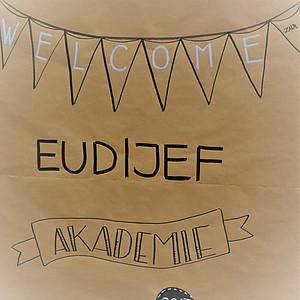 WELCOME
EUDIJEF
AKADEMIE